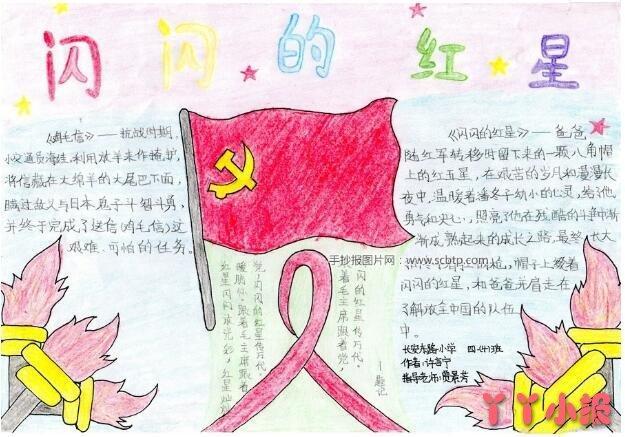 闪闪的红星
《鸡毛信》——抗战时期,
小交通员海娃,利用放羊来作掩护,
将信藏在大绵羊的大尾巴下面,
巧妙与日本鬼子斗智斗勇,
并终于完成了送信(鸡毛信)这
艰难、可怕的任务。
《闪闪的红星》——爸爸
随红军转移时留下来的一颗八角帽
上的红五星,在艰苦的岁月和漫漫长
夜中,温暖着潘冬子幼小的心灵,给了他
勇气和决心,照亮了他在残酷的斗争中渐
渐成熟起来的成长之路,最终长大
帽子上缀着
闪闪的红星,和爸爸并肩走在
了解放全中国的队伍
中。
手抄报图片网:www.scbtp.com
闪闪的红星传万代,
跟着毛主席跟着党,
党,闪闪的红星传万代。
暖胸怀。跟着毛主席跟着
红星闪闪放光彩,红星灿灿
长安东路小学 四·(4)班
作者:许言宁
指导老师:贾景芳
丫丫小报